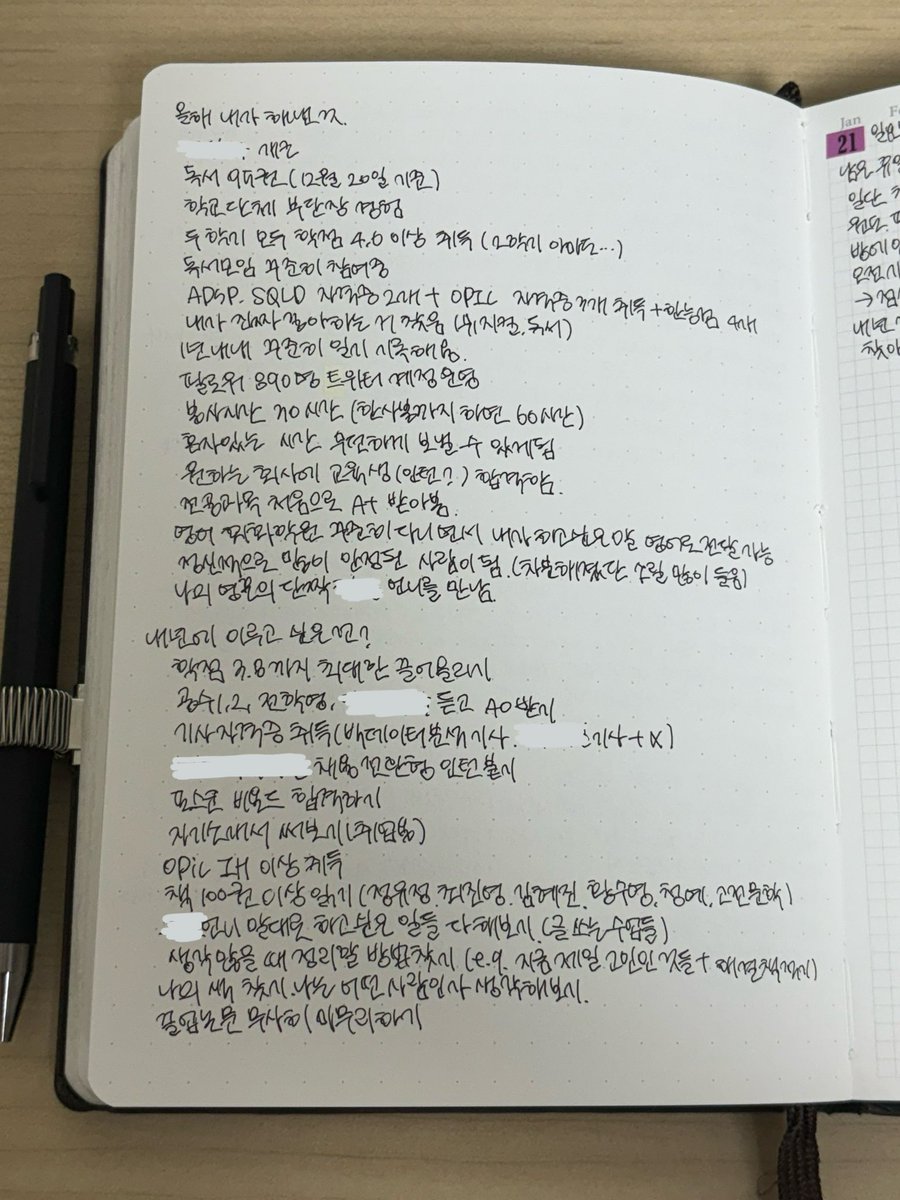 올해 내가 해낸 것.
개근
독서 95권 (12월 20일 기준)
학교단체 부단장 경험
두 학기 모두 학점 4.0 이상 취득 (2학기 아마도...)
독서모임 꾸준히 참여중
ADSP. SQLD 자격증 2개 + OPIC 자격증 1개 취득 + 한능검 4개
내가 진짜 좋아하는 거 찾음 (뮤지컬, 독서)
1년 내내 꾸준히 일기 지속해옴.
팔로워 890명 트위터 계정 운영
봉사시간 70시간 (한사봉까지 하면 60시간)
혼자있는 시간 무던하게 보낼 수 있게됨
원하는 회사에 교육생(인턴?) 합격함.
전공과목 처음으로 A+ 받아봄.
영어 회화학원 꾸준히 다니면서 내가 하고싶은 말 영어로 전달 가능
정신적으로 많이 안정된 사람이 됨. (차분해졌단 소릴 많이 들음)
나의 영혼의 단짝 언니를 만남
내년에 이루고 싶은 건?
학점 3.8까지 최대한 끌어올리기
공수1, 2, 전학영, 듣고 A0 받기
기사 자격증 취득 (빅데이터분석기사. 기사 + α)
채용전환형 인턴 붙기
포스코 비욘드 합격하기
자기소개서 써보기 (취업용)
OPIC IH 이상 취득
책 100권 이상 읽기 (정유정, 최진영, 김혜진, 황수영, 청예, 고전문학)
언니 말대로 하고싶은 일들 다 해보기. (글 쓰는 수업들)
생각 많을 때 정리할 방법 찾기 (e.g. 지금 제일 고민인 것들 + 해결책 적기)
나의 색 찾기. 나는 어떤 사람인가 생각해보기.
졸업논문 무사히 마무리하기
Jan
21 일요
일단
방에
오전시
내년
찾아